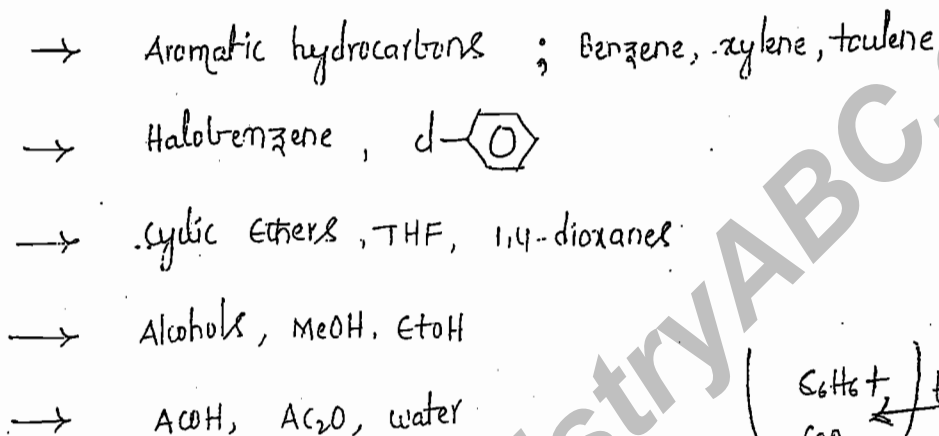 → Aromatic hydrocarbons ; Benzene, xylene, toulene
→ Halobenzene , cl-
→ Cyclic Ethers , THF, 1,4-dioxanes
→ Alcohols, MeOH, EtOH
C6H6 +
→ ACOH, AC2O, water
stryABC.